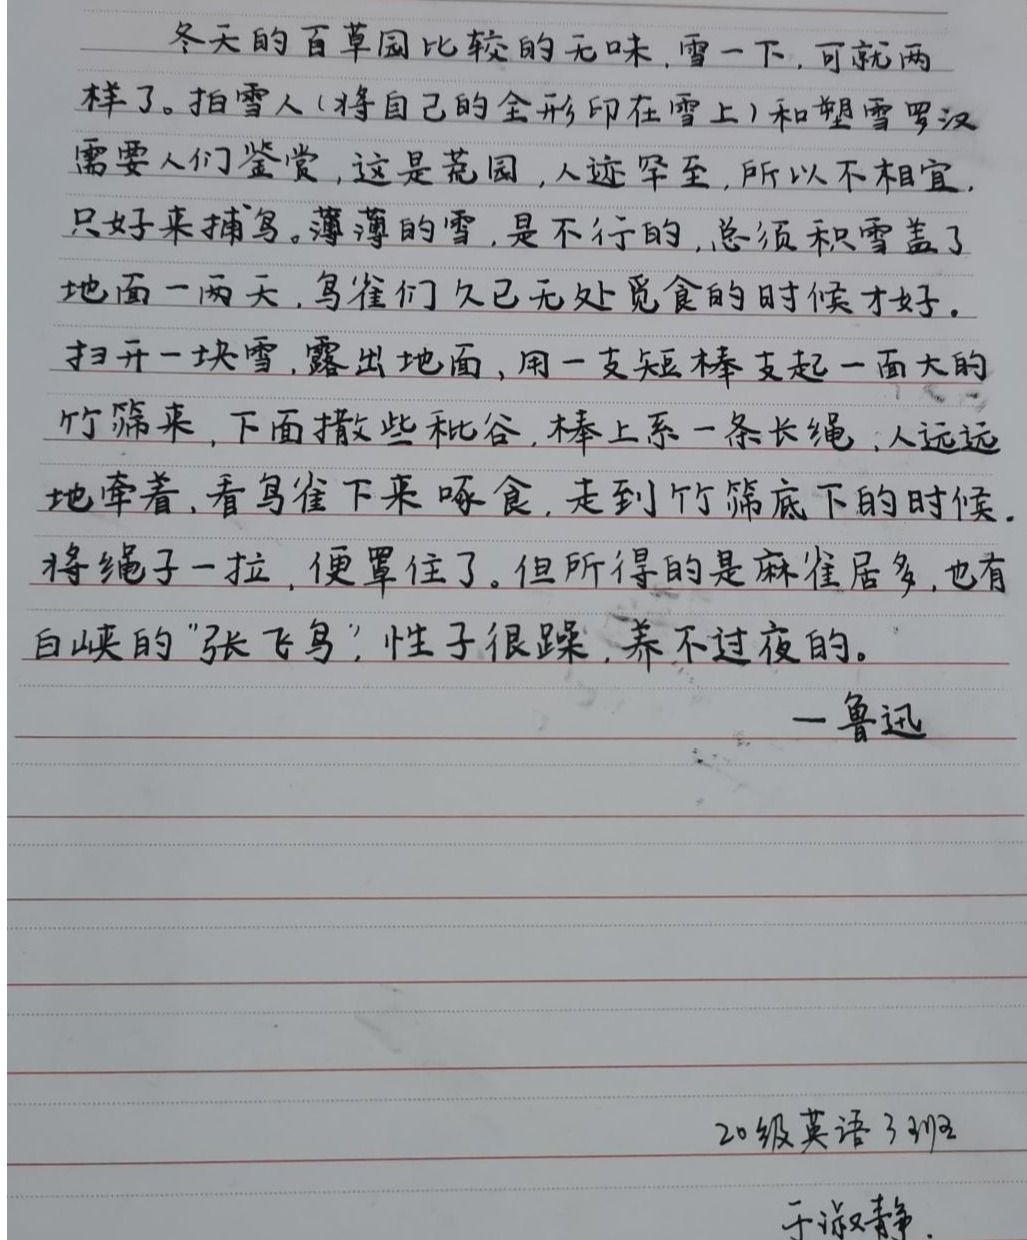 冬天的百草园比较的无味,雪一下,可就两
样了。拍雪人(将自己的全形印在雪上)和塑雪罗汉
需要人们鉴赏,这是荒园,人迹罕至,所以不相宜,
只好来捕鸟。薄薄的雪,是不行的,总须积雪盖了
地面一两天,鸟雀们久已无处觅食的时候才好。
扫开一块雪,露出地面,用一支短棒支起一面大的
竹筛来,下面撒些秕谷,棒上系一条长绳,人远远
地牵着,看鸟雀下来啄食,走到竹筛底下的时候,
将绳子一拉,便罩住了。但所得的是麻雀居多,也有
白峡的“张飞鸟”,性子很躁,养不过夜的。
—鲁迅
20级英语3班
于淑静.